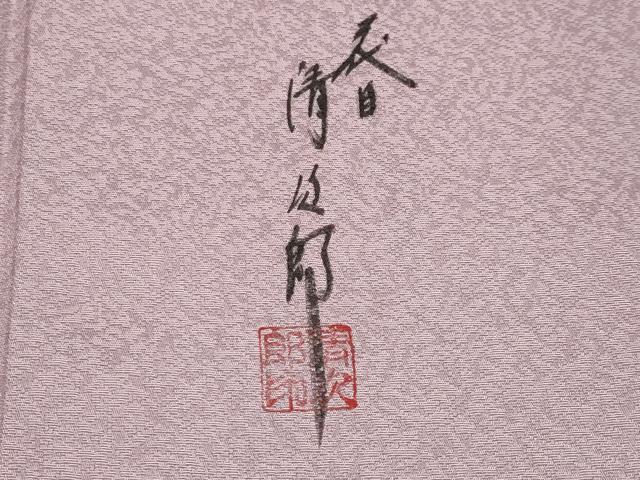 春
清次郎
清次
郎印